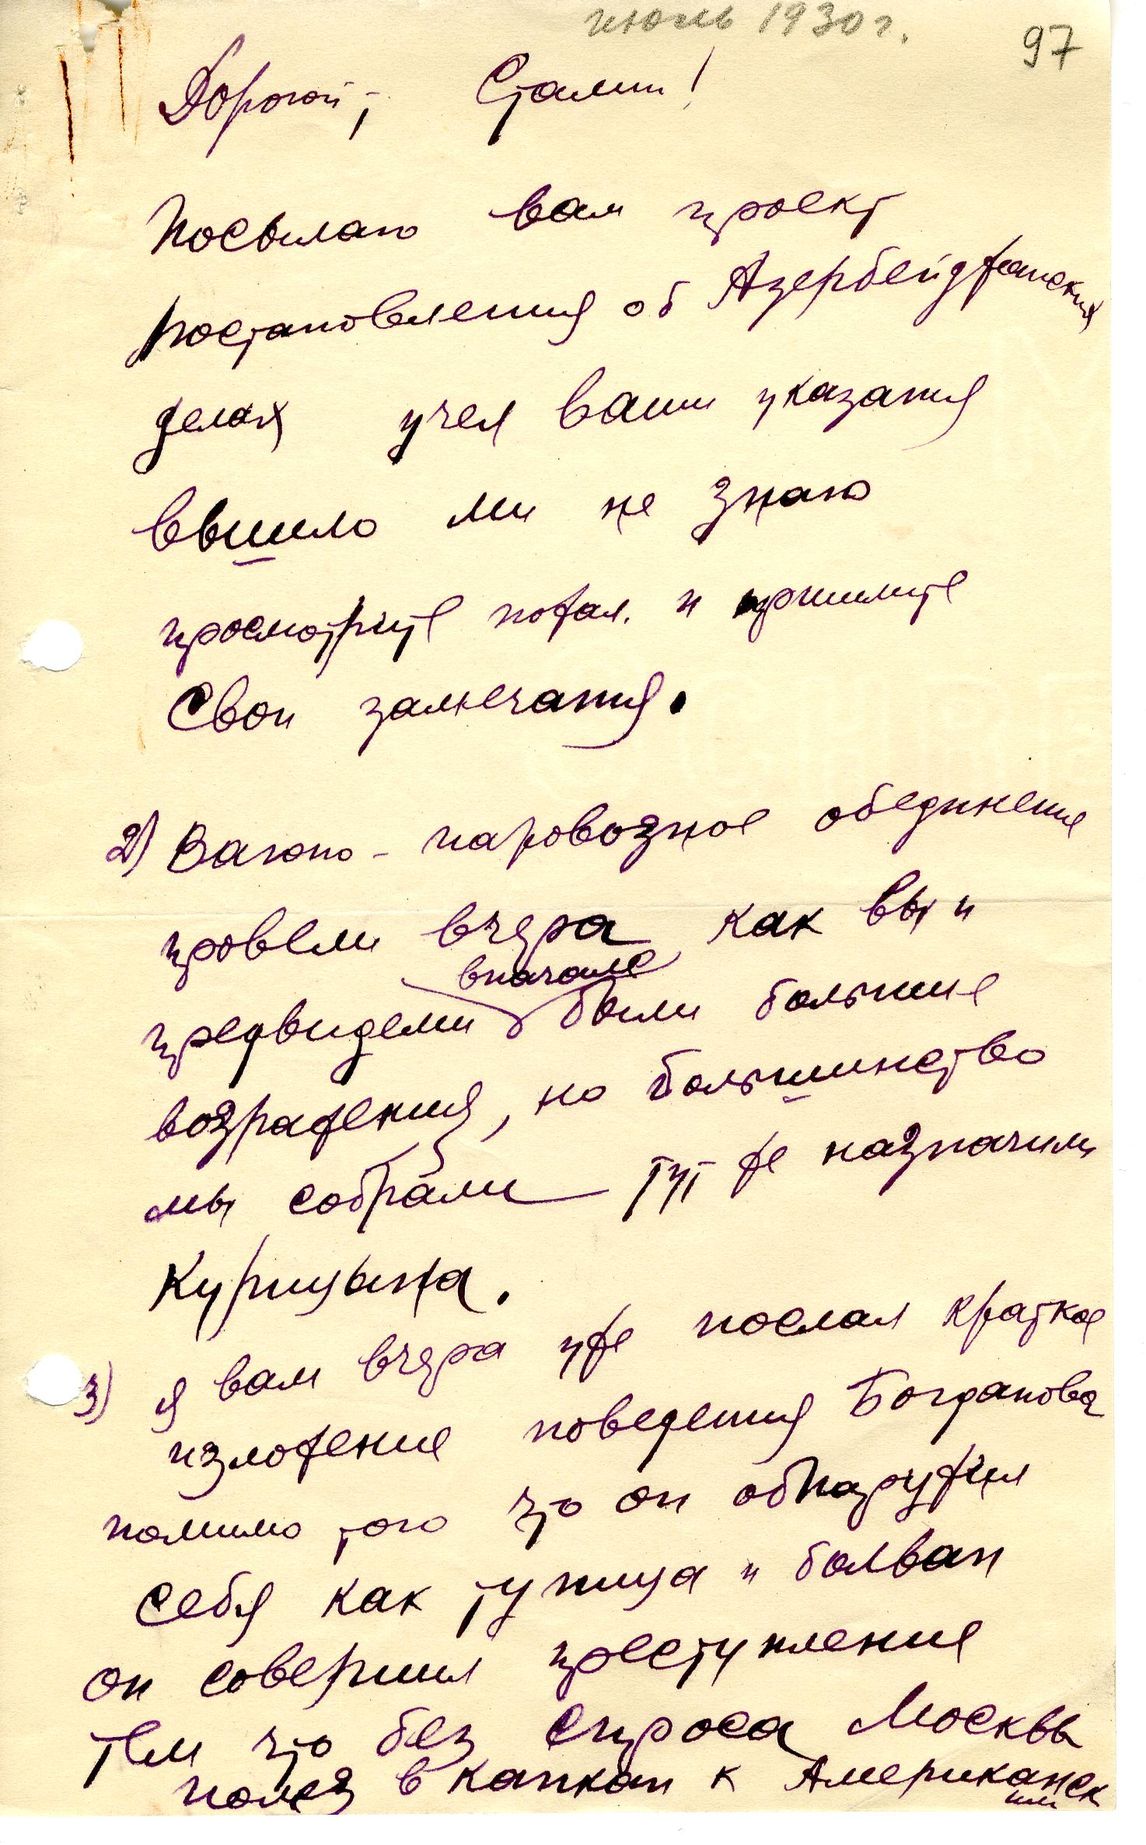 июль 1930 г.
97
Дорогой, Сталин!
Посылаю вам проект
постановления об Азербейджанских
делах учел ваши указания
ввышло ли не знаю
просмотрите пожал. и пришлите
свои замечания.
2) Вагоно-паровозное обединение
провели вчера как вы и
вначале
предвидели были большие
возражения, но большинство
мы собрали тут же назначили
Курицына.
3) Я вам вчера уже послал краткое
изложение поведения Богданова
помимо того что он обнаружил
себя как тупица и болван
он совершил преступление
тем что без спроса Москвы
полез в капкан к Американск
им